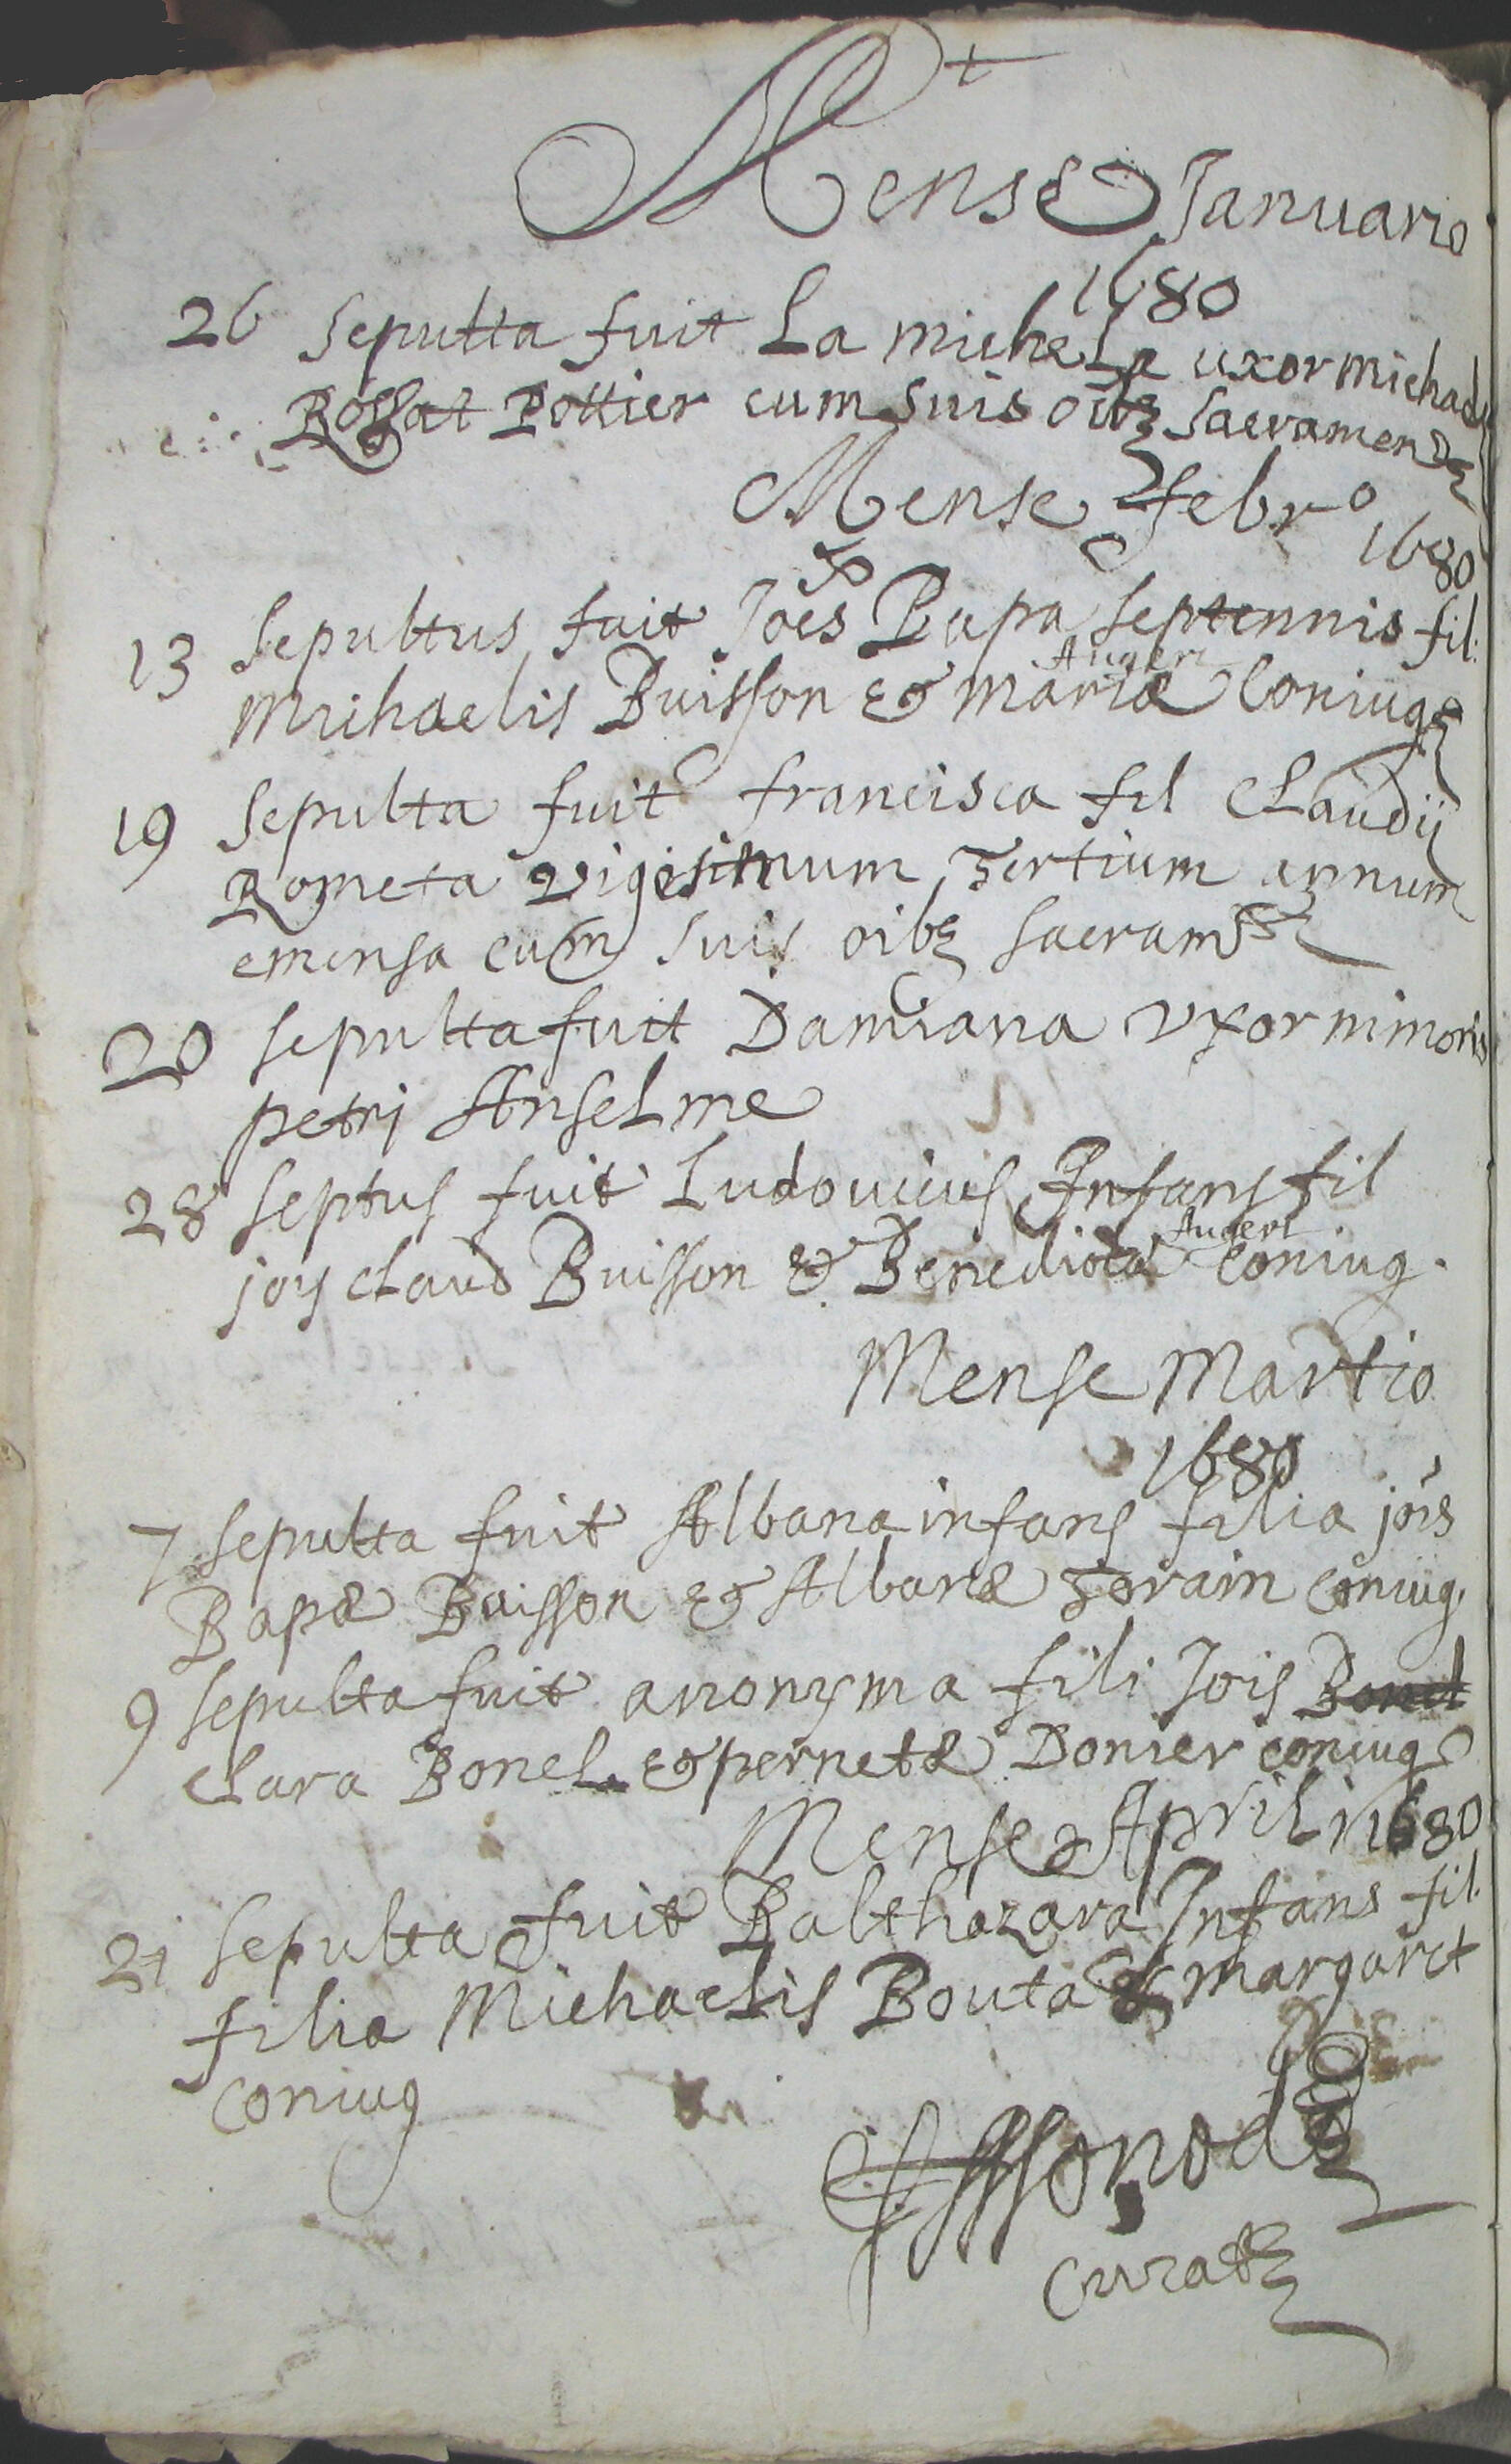 Mense Januario
1680
26 sepulta fuit La michela uxor michaelis
Rossat Pottier cum suis oibz sacramen
Mense febro
1680
13 sepultus fuit Joes Bapa septennis fil.
Augert
Michaelis Buisson & mariæ Coniug
19 sepulta fuit francisca fil Claudij
Rometa vigesimum tertium annum
emensa cum suis oibz sacram
20 sepulta fuit Damiana vxor minoris
petri Anselme
28 septus fuit Ludovicus Infans fil
Augert
jois claud Buisson & Benedictæ Coniug.
Mense Martio
1680
7 sepulta fuit Albana infans filia jois
Bapæ Buisson & Albanæ Torain coniug.
9 sepulta fuit anonyma fili Jois Bonel
clara Bonel & pernetæ Donier coniug
Mense Aprili 1680
21 sepulta fuit Balthazara Infans fil.
filia Michaelis Bouta & margaret
coniug
curat